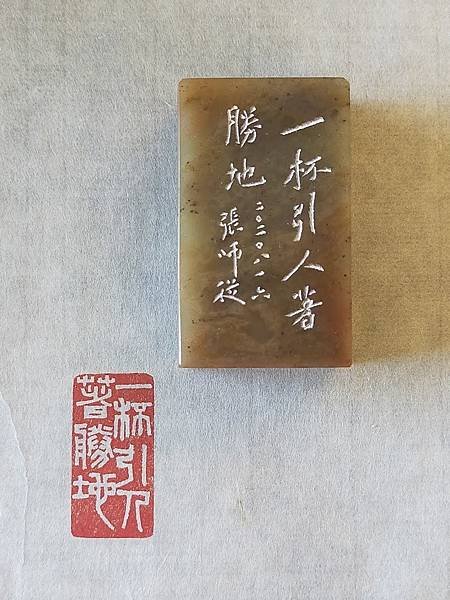 一杯引人著
勝地
二〇二〇.八.十六
張師從
一杯引人
著勝地